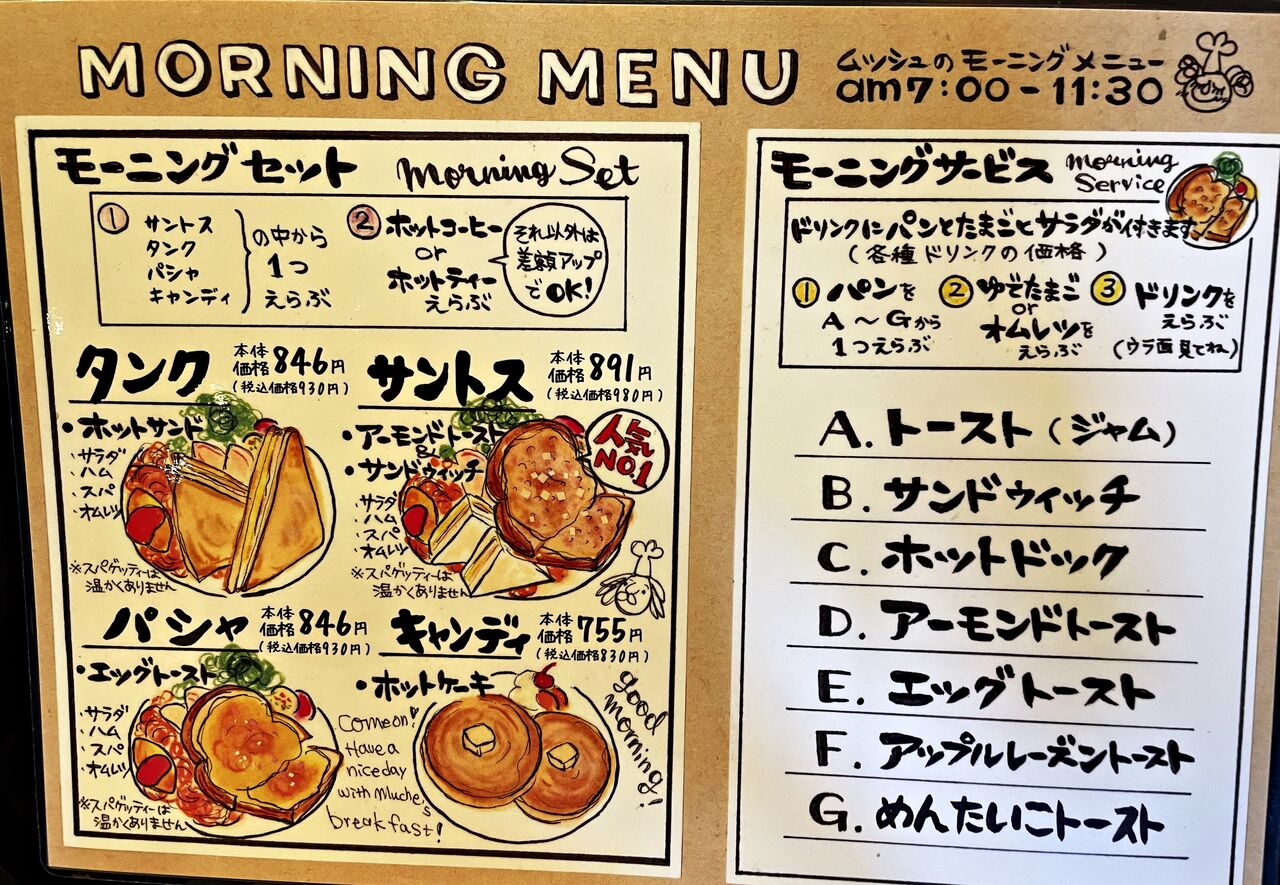 MORNING MENU
ムッシュのモーニングメニュー
am7:00-11:30
モーニングセット Morning Set
① サントス
タンク
パシャ
キャンディ
の中から
1つ
えらぶ
② ホットコーヒー
or
ホットティー
えらぶ
それ以外は
差額アップ
でOK!
タンク
本体
価格846円
(税込価格930円)
・ホットサンド
・サラダ
・ハム
・スパ
・オムレツ
※スパゲッティーは
温かくありません
サントス
本体
価格891円
(税込価格980円)
・アーモンドトースト
&
・サンドウィッチ
・サラダ
・ハム
・スパ
・オムレツ
人気
NO.1
※スパゲッティーは
温かくありません
パシャ
本体
価格846円
(税込価格930円)
・エッグトースト
・サラダ
・ハム
・スパ
・オムレツ
※スパゲッティーは
温かくありません
キャンディ
本体
価格755円
(税込価格830円)
・ホットケーキ
Come on!
Have a
nice day
with Muche's
breakfast!
good
morning!
モーニングサービス Morning
Service
ドリンクにパンとたまごとサラダが付きます
(各種ドリンクの価格)
① パンを
A〜Gから
1つえらぶ
② ゆでたまご
or
オムレツを
えらぶ
③ ドリンクを
えらぶ
(ウラ面見てね)
A. トースト(ジャム)
B. サンドウィッチ
C. ホットドック
D. アーモンドトースト
E. エッグトースト
F. アップルレーズントースト
G. めんたいこトースト